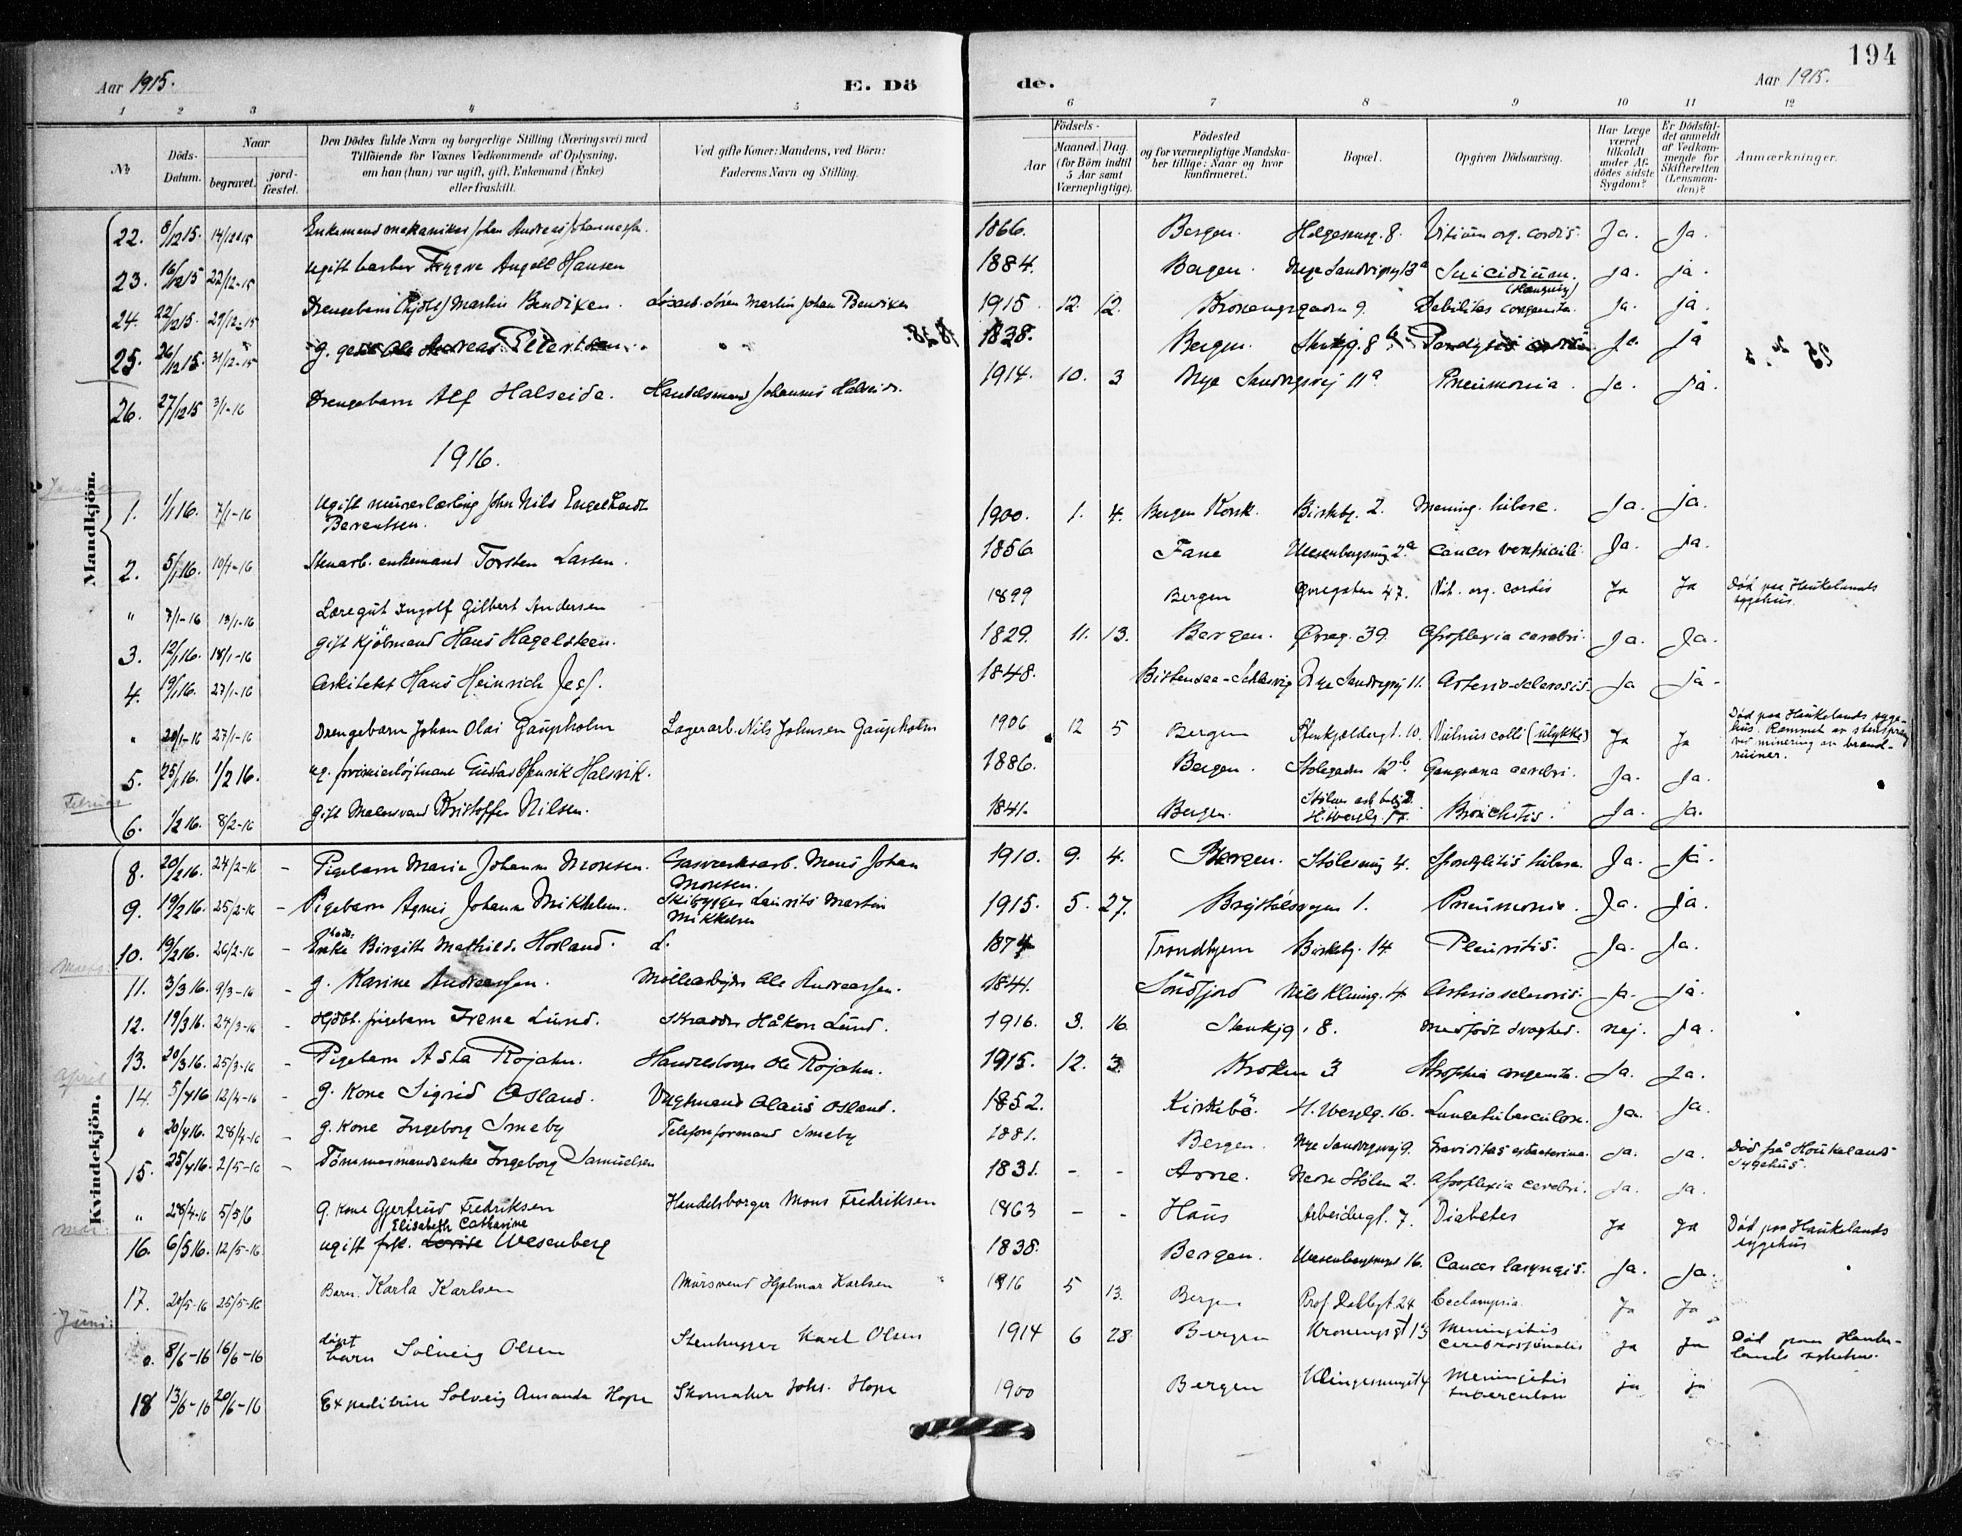 194
Aar 1915. E. Dö
de. Aar 1915.
1 2 3 4 5 6 7 8 9 10 11 12
№
Döds-Datum.
Naar
begravet.
jord-fæstet.
Den Dödes fulde Navn og borgerlige Stilling (Næringsvei) med
Tilföiende for Voxnes Vedkommende af Oplysning,
om han (hun) var ugift, gift, Enkemand (Enke)
eller fraskilt.
Ved gifte Koner: Mandens, ved Börn:
Faderens Navn og Stilling.
Födsels-
Aar
Maaned. Dag.
(for Börn indtil
5 Aar samt
Værnepligtige).
Födested
og for værnepligtige Mandska-
ber tillige: Naar og hvor
konfirmeret.
Bopæl.
Opgiven Dödsaarsag.
Har Læge
været
tilkaldt
under Af-
dödes sidste
Sygdom?
Er Dödsfal-
det anmeldt
af Vedkom-
mende for
Skifteretten
(Lensman-
den)?
Anmærkninger.
Mandkjön.
22. 8/12 15. 14/12 15 Enkemand mekaniker Johan Andreas Johannessen. 1866. Bergen. Helgesensg. 8. Vitium org. cordis. Ja. Ja.
23. 16/12 15 22/12-15 Ugift barber Trygve Angell Hansen 1884. Bergen. Nye Sandvigsvej 13a Suicidium. (Hængning) ja. ja.
24. 22/12 15. 29/12-15 Drengebarn Martin Bendixen. Søren Martin Johan Bendixen 1915 12. 12. Kroneng​sgaden 9. Debilitas congenita. Ja. ja.
25. 26/12 15. 31/12-15 g. Ole Andreas Eilertsen. 1838. 1838. Bergen. 8 Ja. ja
26. 27/12 15 3/1-16 Drengebarn Alf Halseide. Handelsmand Johannes Halseide. 1914. 10. 3 Nye Sandvigsvej 11a Pneumonia. Ja. ja.
1916.
1. 1/1 16. 7/1-16 Ugift murerlærling John Nils Engelhardt
Berentsen. 1900. 1. 4. Bergen Korsk. Birkebg. 2. Mening. tuberc. Ja. ja.
2. 5/1 16. 10/1-16 Stenarb. enkemand Torsten Larsen. 1856. Fane Wesenbergsmug 2a Cancer ventriculi. Ja. ja.
" 7/1-16 13/1-16 Læregut Ingolf Gilbert Andersen 1899 Bergen Øvregaten 47. Vit. org. cordis Ja Ja Død paa Haukelands
sygehus.
3. 12/1 16. 18/1-16 gift kjølmand Hans Hagelsteen. 1829. 11. 13. Bergen. Øvreg. 39. Apoplexia cerebri. Ja. Ja.
4. 19/1 16. 27/1-16 Arkitekt Hans Heinrich Jess. 1848. Bistensee-Schlesvig Nye Sandvigsvej 11. Arterio-sclerosis. Ja ja -
" 20/1-16 27/1-16 Drengebarn Johan Olai Gaupholm Lagerarb. Nils Johnsen Gaupholm 1906 12 5 Bergen Stenkjeldergt. 10. Vulnus colli (ulykke) Ja Ja Død paa Haukelands syge-
hus. Rammet av stensprang
ved minering av brand-
ruiner.
5. 25/1 16. 1/2 16. ug. premierløjtnant Gustav Henrik Halsvik. 1886. Bergen. Stølegaden 12b. Gangræna cerebri. Ja. Ja.
Februar
6. 1/2 16. 8/2-16 Gift Malersvend Kristoffer Nilsen. 1841. Bergen. H. Weselsg 17. Bronchitis. Ja. Ja.
Kvindekjön.
8. 20/2 16. 24/2-16 - Pigebarn Marie Johanne Monsen. Gasverksarb. Mons Johan
Monsen. 1910. 9. 4. Bergen. Stølesmug 4. Spondylitis tuberc. Ja. ja
9. 19/2 16. 25/2-16 - Pigebarn Agnes Johanne Mikkelsen. Skibygger Laurits Martin
Mikkelsen 1915. 5. 27. 1. Pneumonia. Ja. ja.
10. 19/2 16. 26/2-16 - Enke Birgitte Mathilde Hovland. 1874 Trondhjem Birkebg. 14 Pleuritis. Ja. Ja.
Marts:
11. 3/3 16. 9/3-16 - g. Karine Andreassen. Møllearbejder Ole Andreassen. 1841. Söndfjord Nils Klimsg. 4. Arteriosclerosis. Ja. Ja
12. 19/3 16. 24/3-16 - Hjdbt. pigebarn Irene Lund. Skrædder Håkon Lund. 1916. 3. 16. Stenkjg. 8. medfødt svaghed. nej. Ja.
13. 20/3 16. 25/3-16 - Pigebarn Asta Rojahn. Handelsborger Ole Rojahn. 1915. 12. 3. Kroken 3 Atrophia congenita. Ja. Ja.
April
14. 5/4 16 12/4-16 - g. Kone Sigrid Osland. Vægtmand Olaus Osland. 1852. Kirkebö. H. Weselsg. 16. Ja. ja.
" 20/4 16. 28/4-16 - g. Kone Ingeborg Smeby Telefonformand Smeby 1881. Bergen. Nye Sandvigsvej 9. Graviditas extauterina. Ja. Ja. Död på Haukelands
sygehus.
15. 25/4 16. 2/5-16 - Tömmermandsenke Ingeborg Samuelsen 1831. - - Arne. Nedre Stølen 2. Apoplexia cerebri. Ja. ja.
" 28/4-16 5/5 16 g. kone Gjertrud Fredriksen Handelsborger Mons Fredriksen 1863 - - Haus Arbeidergt. 7. Diabetes Ja Ja Død paa Haukelands
sygehus
Mai:
16. 6/5 16. 12/5-16. ugift frk. Elisabeth Catharine Wesenberg 1838. Bergen. Wesenbergsmug 16. Cancer laryngis. Ja. Ja.
17. 20/5-16 25/5-16 Barn. Karla Karlsen Mursvend Hjalmar Karlsen 1916 5 13. Bergen Prof. Dahlsgt. 24 Eclampsia. Ja Ja
Juni:
8/6-16 16/6-16 døpt
barn Solveig Olsen Stenhugger Karl Olsen 1914 6 28 Bergen Kronengsgt 13 Meningitis
cerebrospinalis Ja Ja Død paa Hauke-
lands sykehus.
18 13/6-16 20/6-16 Expeditrise Solveig Amanda Hope Skomaker Johs. Hope 1900 Bergen Meningitis
tuberculosa ja ja